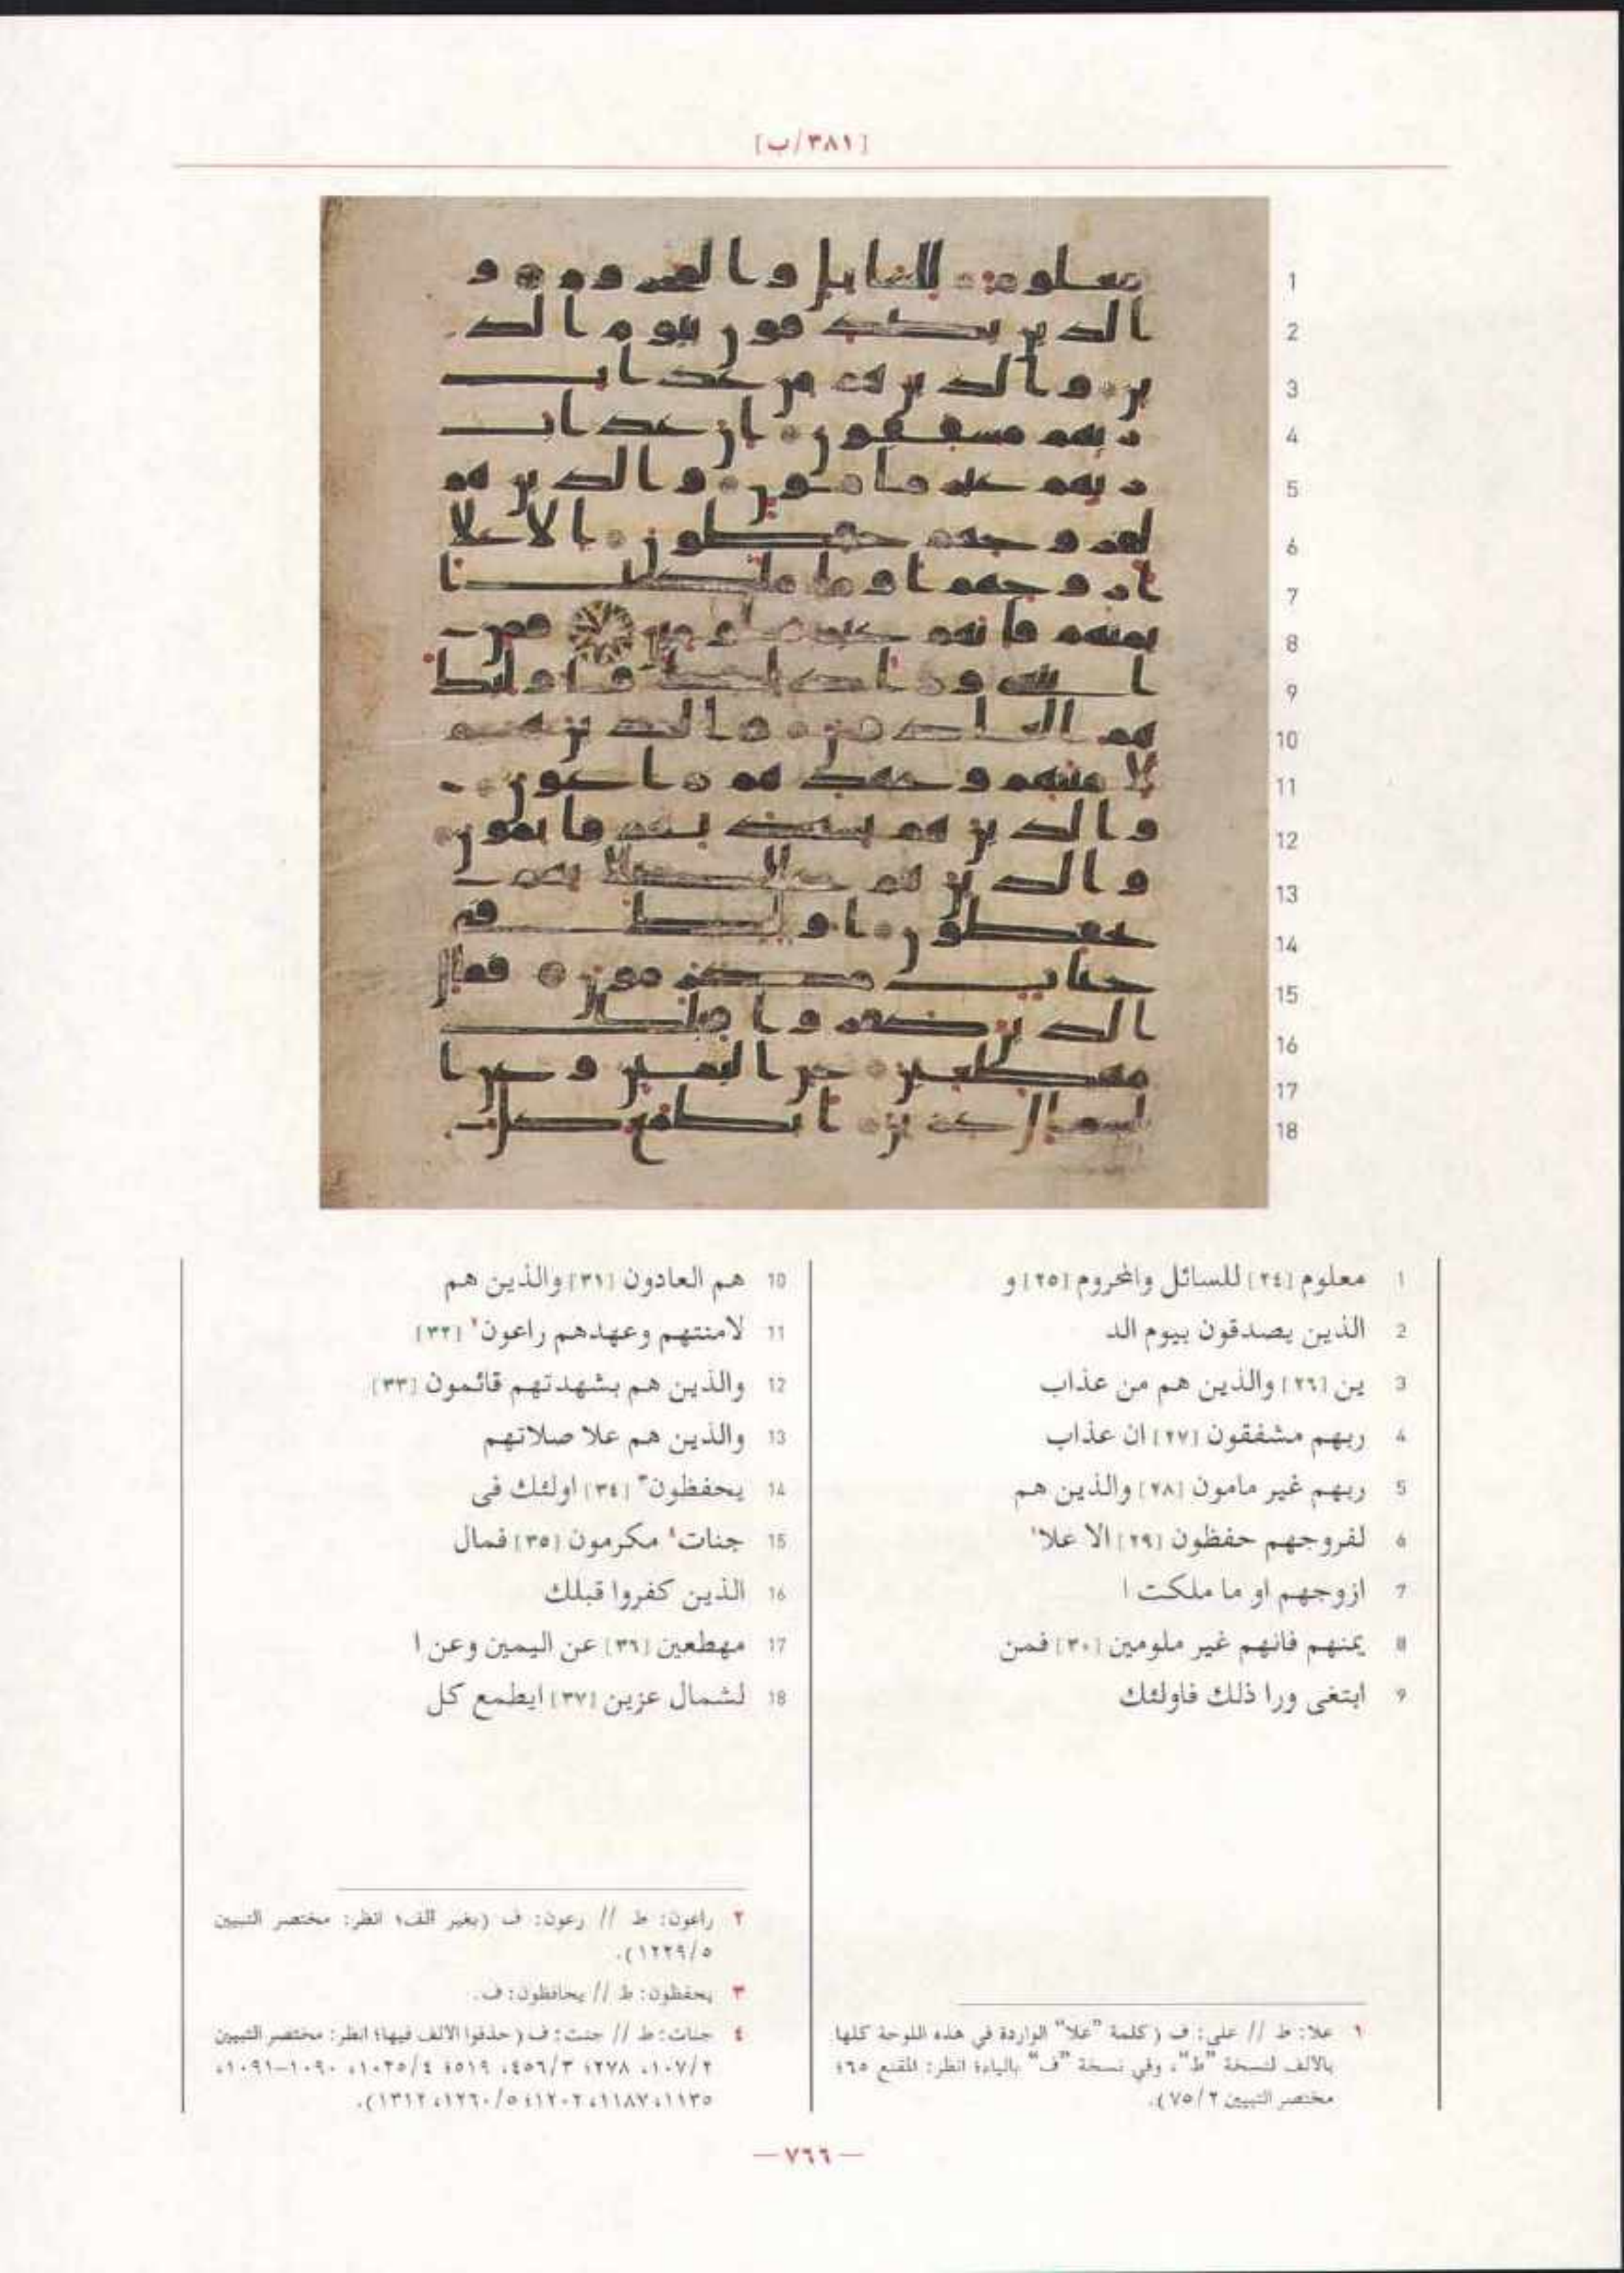 [٣٨١/ب]
1 معلوم [٢٤] للسائل والمحروم [٢٥] و
2 الذين يصدقون بيوم الد
3 ين [٢٦] والذين هم من عذاب
4 ربهم مشفقون [٢٧] ان عذاب
5 ربهم غير مامون [٢٨] والذين هم
6 لفروجهم حفظون [٢٩] الا علا١
7 ازوجهم او ما ملكت ا
8 يمنهم فانهم غير ملومين [٣٠] فمن
9 ابتغى ورا ذلك فاولئك
10 هم العادون [٣١] والذين هم
11 لامنتهم وعهدهم راعون٢ [٣٢]
12 والذين هم بشهدتهم قائمون [٣٣]
13 والذين هم علا صلاتهم
14 يحفظون٣ [٣٤] اولئك فى
15 جنات٤ مكرمون [٣٥] فمال
16 الذين كفروا قبلك
17 مهطعين [٣٦] عن اليمين وعن ا
18 لشمال عزين [٣٧] ايطمع كل
١ علا: ط // على: ف (كلمة "علا" الواردة في هذه اللوحة كلها
بالالف لنسخة "ط"، وفي نسخة "ف" بالياء؛ انظر: المقنع ٦٥؛
مختصر التبيين ٧٥/٢).
٢ راعون: ط // رعون: ف (بغير الف؛ انظر: مختصر التبيين
١٢٢٩/٥).
٣ يحفظون: ط // يحافظون: ف.
٤ جنات: ط // جنت: ف (حذفوا الالف فيها؛ انظر: مختصر التبيين
١٠٧/٢، ٢٧٨؛ ٤٥٦/٣، ٥١٩؛ ١٠٢٥/٤، ١٠٩٠-١٠٩١،
١١٣٥، ١١٨٧، ١٢٠٢؛ ١٢٦٠/٥، ١٣١٢).
— ٧٦٦ —